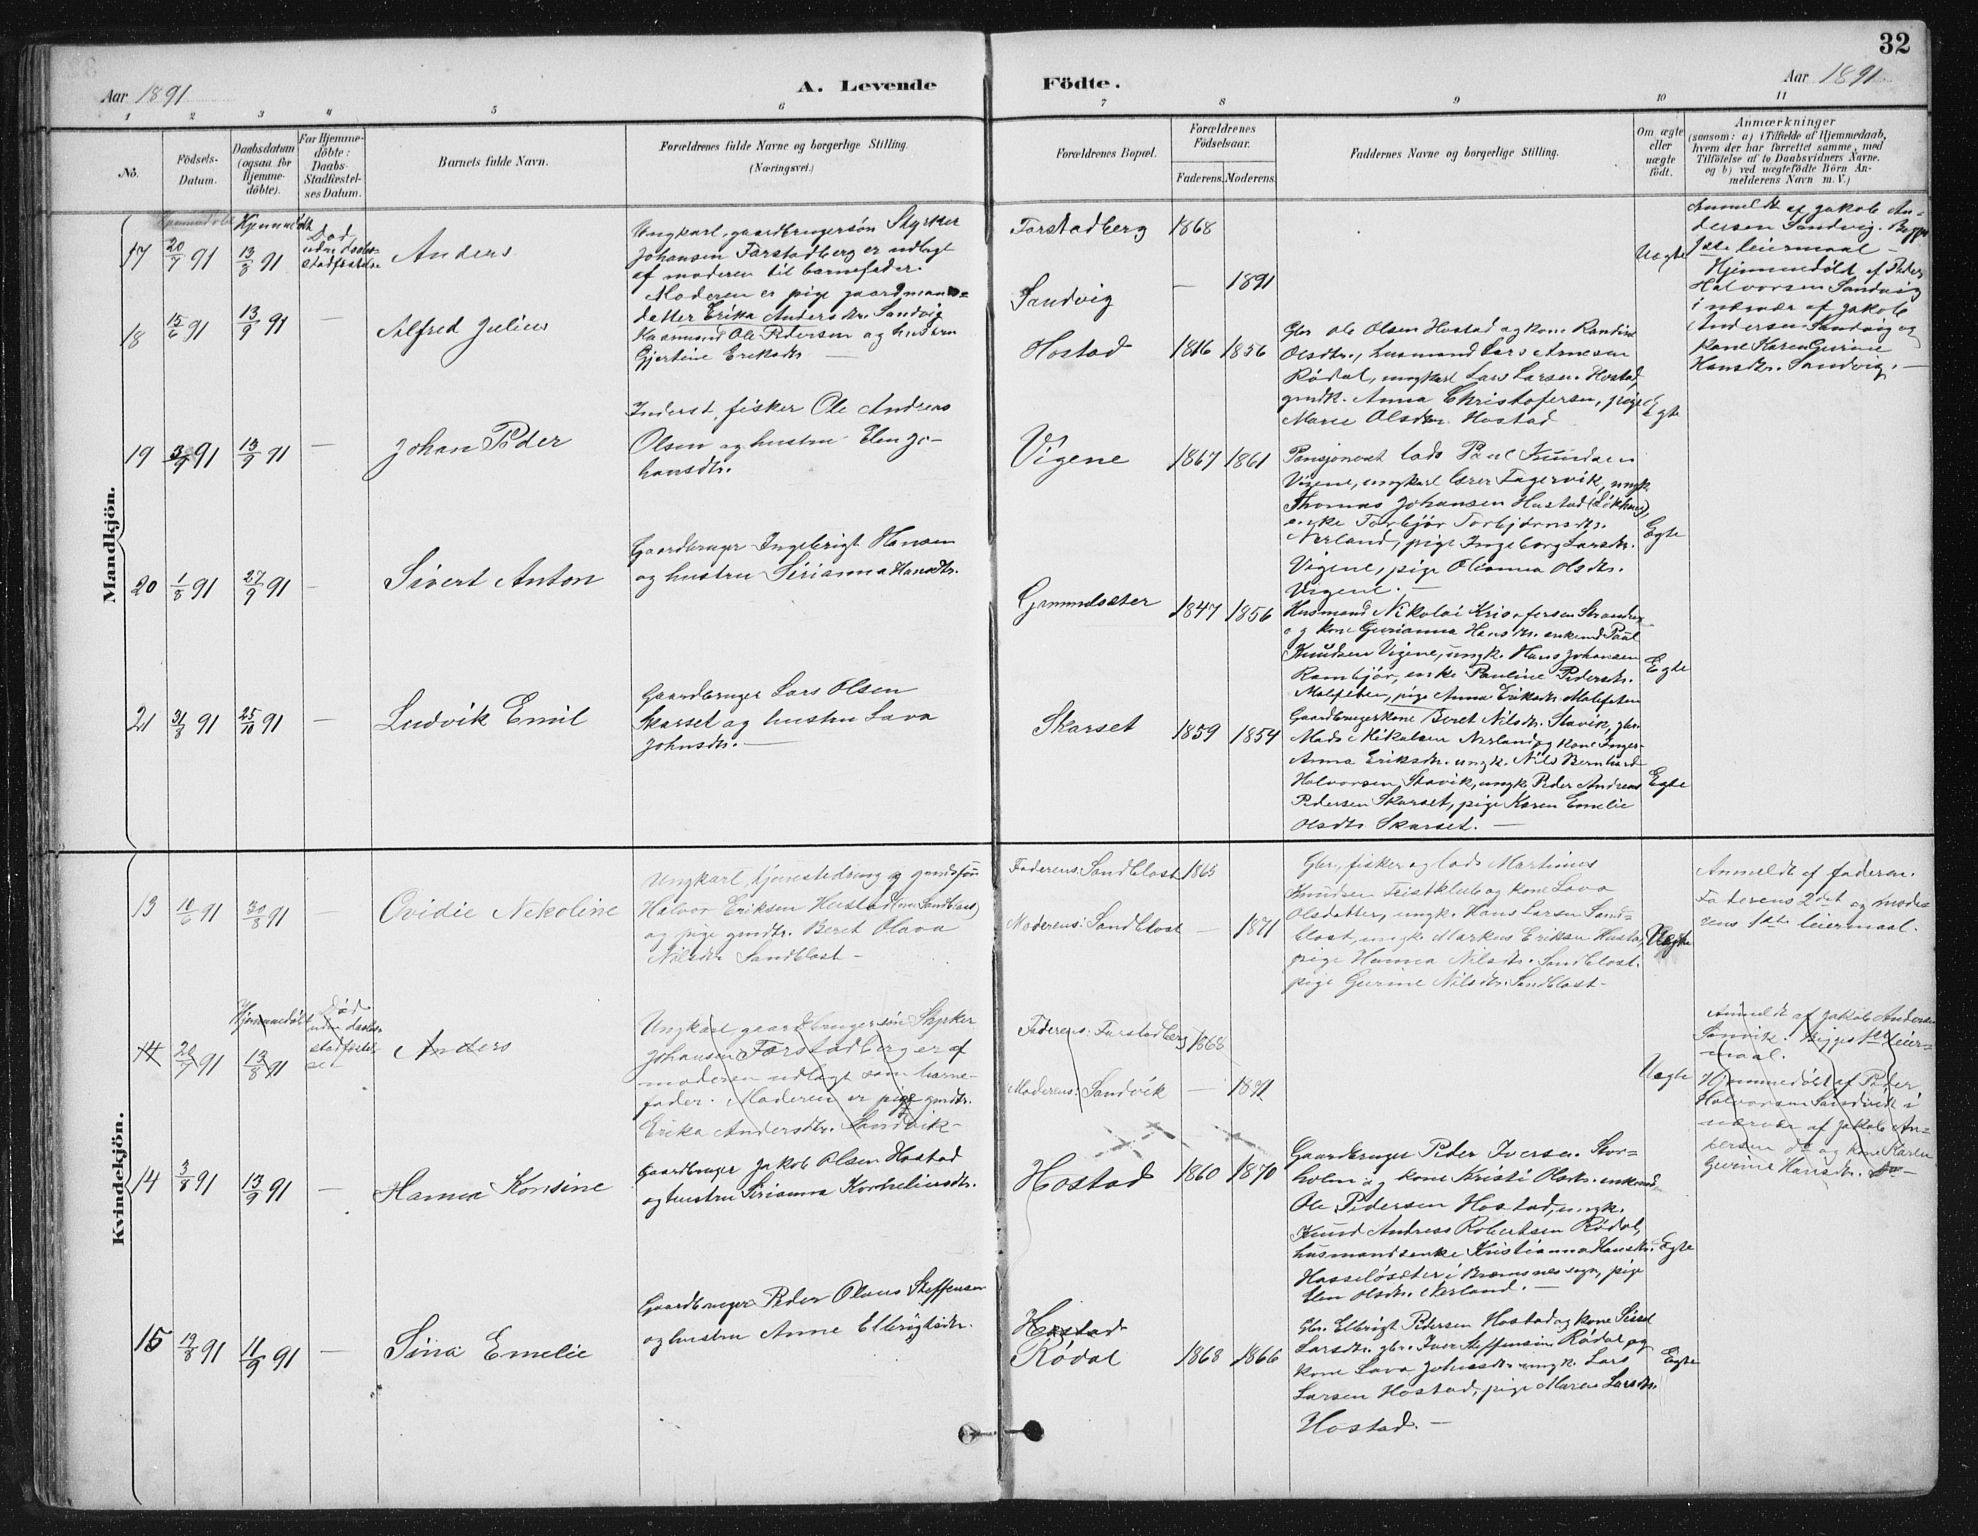 32
Aar 1891
A. Levende Födte.
Aar 1891
1 2 3 4 5 6 7 8 9 10 11
No.
Födsels-Datum.
Daabsdatum (ogsaa for Hjemmedöbte).
For Hjemmedöbte: Daabs-Stadfæstelses Datum.
Barnets fulde Navn.
Forældrenes fulde Navne og borgerlige Stilling.
(Næringsvei.)
Forældrenes Bopæl.
Forældrenes Födselsaar.
Faderens. Moderens.
Faddernes Navne og borgerlige Stilling.
Om ægte eller uægte födt.
Anmærkninger
(saasom: a) i Tilfælde af Hjemmedaab, hvem der har forrettet samme, med Tilföielse af to Daabsvidners Navne. og b) ved uægtefödte Börn Anmelderens Navn m. V.)
Mandkjön.
17
20/7 91
Hjemmedöbt
13/8 91
Död uden daabsstadfæstelse
Anders
Ungkarl, gaardbrugersön Styrker
Johansen Farstadberg er udlagt
af moderen til barnefader.
Moderen er pige gaardmands-
datter Erika Andersdtr. Sandvig
Farstadberg
1868
Sandvig
—
1891
Uægte
Anmeldt af Jakob An-
dersen Sandvig. Begges
1ste leiermaal —
Hjemmedöbt af Peder
Halvorsen Sandvig
i nærvær af Jakob
Andersen Sandvig og
kone Karen Gurine
Hansdtr. Sandvig. —
18
15/6 91
13/9 91
—
Alfred Julius
Kaarmand Ole Pedersen og hustru
Gjertine Eriksdtr. —
Hostad
1816 1856
Gbr. Ole Olsen Hostad og kone Randine
Olsdtr., husmand Lars Arnesen
Rödal, ungkarl Lars Larsen Hostad,
gmdk. Anna Christofersen, pige
Marie Olsdtr. Hostad
Egte
19
3/9 91
13/9 91
—
Johan Peder
Inderst, fisker Ole Andreas
Olsen og hustru Elen Jo-
hansdtr.
Vigene
1867 1861
Pensioneret lods Paul Knudsen
Vigene, ungkarl Iver Fagervik, ungk.
Thomas Johansen Hustad
enke Torbjör Torbjörnsdtr.
Nerland, pige Ingeborg Larsdtr.
Vigene, pige Olianna Olsdtr.
Vigene. —
Egte
20
1/8 91
27/9 91
—
Sivert Anton
Gaardbruger Ingebrigt Hansen
og hustru Sirianna Hansdtr.
Grundsæter
1847 1856
Husmand Nikolai Kristofersen
og kone Gurianna Hansdtr. enkemd. Paul
Knudsen Vigene, ungk. Hans Johansen
enke Pauline Pedersdtr.
Malefeten, pige Anna Eriksdtr. Malefeten
Egte
21
31/8 91
25/10 91
—
Ludvik Emil
Gaardbruger Lars Olsen
Skarset og hustru Lava
Johnsdtr. —
Skarset
1859 1854
Gaardbrugerkone Beret Nilsdtr. Stavik, gbr.
Mads Mikalsen Nerland og kone Inger-
Anna Eriksdtr. ungk. Nils Bernhard
Halvorsen Stavik, ungk. Peder Andreas
Pedersen Skarset, pige Karen Emelie
Olsdtr. Skarset. —
Egte
Kvindekjön.
13
11/6 91
30/8 91
—
Ovidie Nekoline
Ungkarl, tjenestedreng og gmdsön
Halvor Eriksen Hustad (nu Sandblast)
og pige gmdtr. Beret Olava
Nilsdtr. Sandblast —
Faderens: Sandblast 1865
Moderens: Sandblast — 1871
Gbr., fisker og lods Martinus
Knudsen Teistklub og kone Lava
Olsdatter, ungk. Hans Larsen Sand-
blast, ungk. Markus Eriksen Hustad,
pige Hanna Nilsdtr. Sandblast.
pige Gurine Nilsdtr. Sandblast —
Uægte
Anmeldt af faderen.
Faderens 2det og mode-
rens 1ste leiermaal.
14
20/7 91
Hjemmedöbt
13/8 91
Död uden daabsstadfæstelse
Anders
Ungkarl, gaardbrugersön Styrker
Johansen Farstadberg er af
moderen udlagt som barne-
fader. Moderen er pige gmdtr.
Erika Andersdtr. Sandvik —
Faderens: Farstadberg 1868
Moderens: Sandvik — 1891
Uægte
Anmeldt af Jakob Andersen
Sanvik. Begges 1ste leier-
maal.
Hjemmedöbt af Peder
Halvorsen Sandvik i
nærvær af Jakob An-
dersen do og kone Karen
Gurine Hansdtr. do —
14
3/8 91
13/9 91
—
Hanna Konsine
Gaardbruger Jakob Olsen Hostad
og hustru Sirianna Korneliusdtr.
Hostad
1860 1870
Gaardbruger Peder Iversen Stor-
holm og kone Kristi Olsdtr. enkemd.
Ole Pedersen Hostad, ungk.
Knud Andreas Robertsen Rödal,
husmandsenke Kristianna Hansdtr.
Hasselösæter i Bremsnes sogn, pige
Elen Olsdtr. Nerland. —
Egte
15
19/8 91
11/9 91
—
Sina Emelie
Gaardbruger Peder Olaus Steffensen
og hustru Anne Elbrigtsdtr.
Hostad
Rödal
1868 1866
Gbr. Elbrigt Pedersen Hostad og kone Sissel
Larsdtr. gbr. Iver Steffensen Rödal og
kone Lava Johnsdtr. ungk. Lars
Larsen Hostad, pige Maren Larsdtr.
Hostad. —
Egte